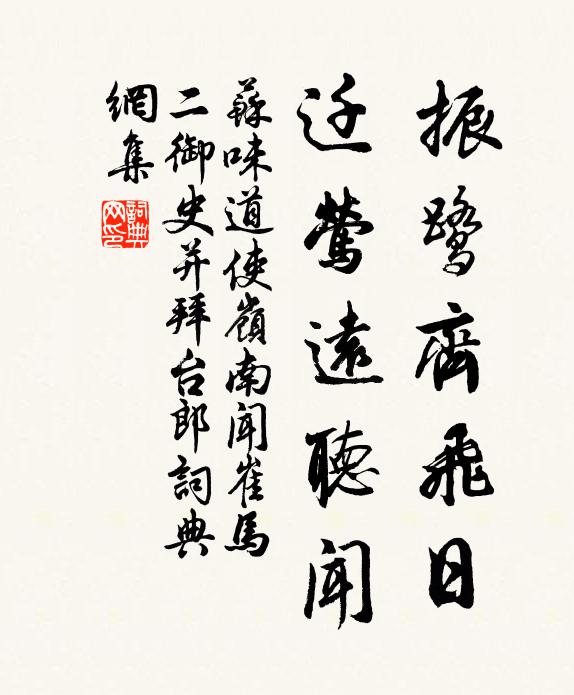 振鹭齊飛日
迁莺遠聽聞
蘇味道使嶺南聞崔馬
二御史并拜台郎詞典
網集
詞典網印